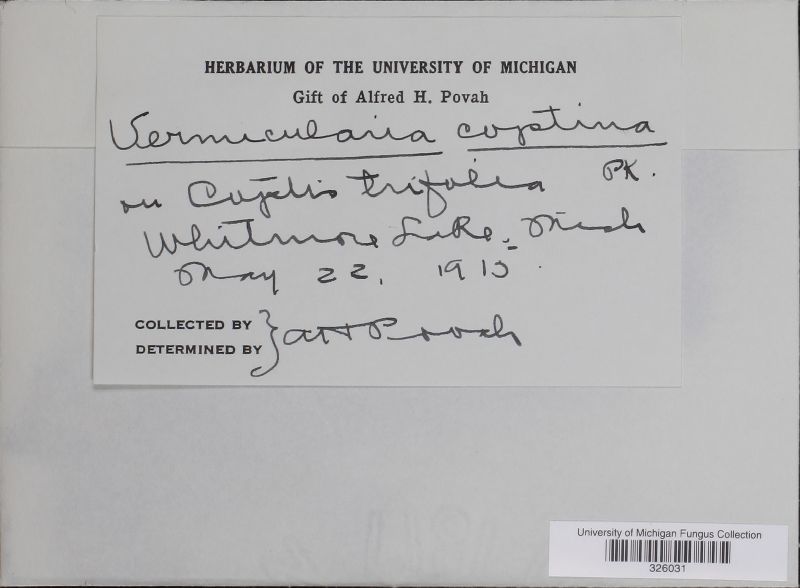 HERBARIUM OF THE UNIVERSITY OF MICHIGAN
Gift of Alfred H. Povah
Vermicularia coptina
PK.
on Coptis trifolia
Whitmore Lake, Mich
May 22, 1915
COLLECTED BY
DETERMINED BY
} AH Povah
University of Michigan Fungus Collection
326031